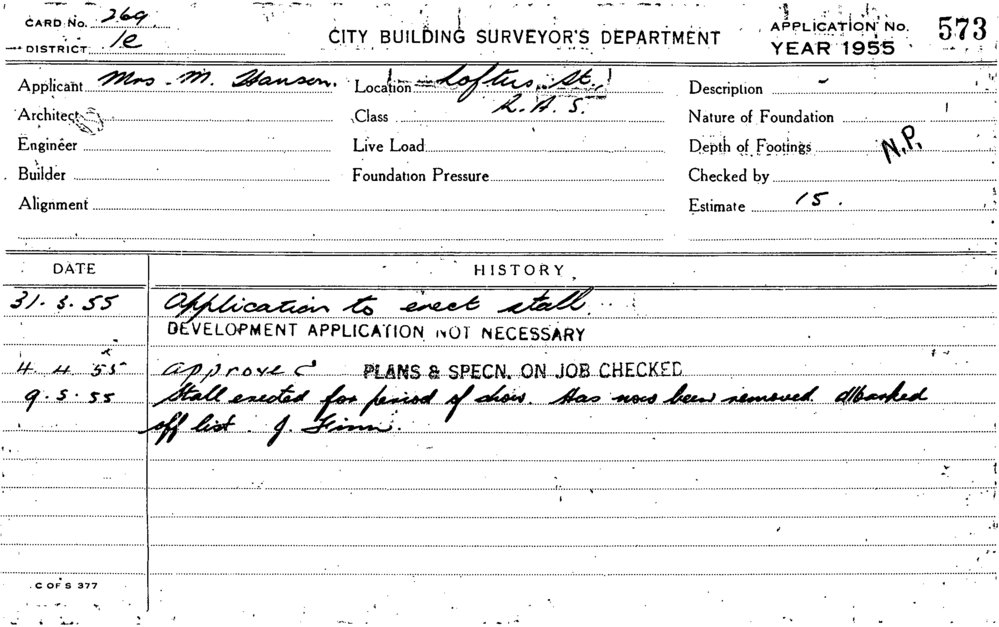 CARD No. 269.
DISTRICT 1e
CITY BUILDING SURVEYOR'S DEPARTMENT
APPLICATION No. 573
YEAR 1955
Applicant Mrs. M. Hanson. Location Loftus St., Description -
Architect Class R.A.S. Nature of Foundation
Engineer Live Load Depth of Footings N.P.
Builder Foundation Pressure Checked by
Alignment Estimate 15.
DATE HISTORY
31.3.55 Application to erect stall.
DEVELOPMENT APPLICATION NOT NECESSARY
4.4.55 approved PLANS & SPECN. ON JOB CHECKED
9.5.55 Stall erected for period of show. Has now been removed. Marked
off list. J. Finn.
C OF S 377